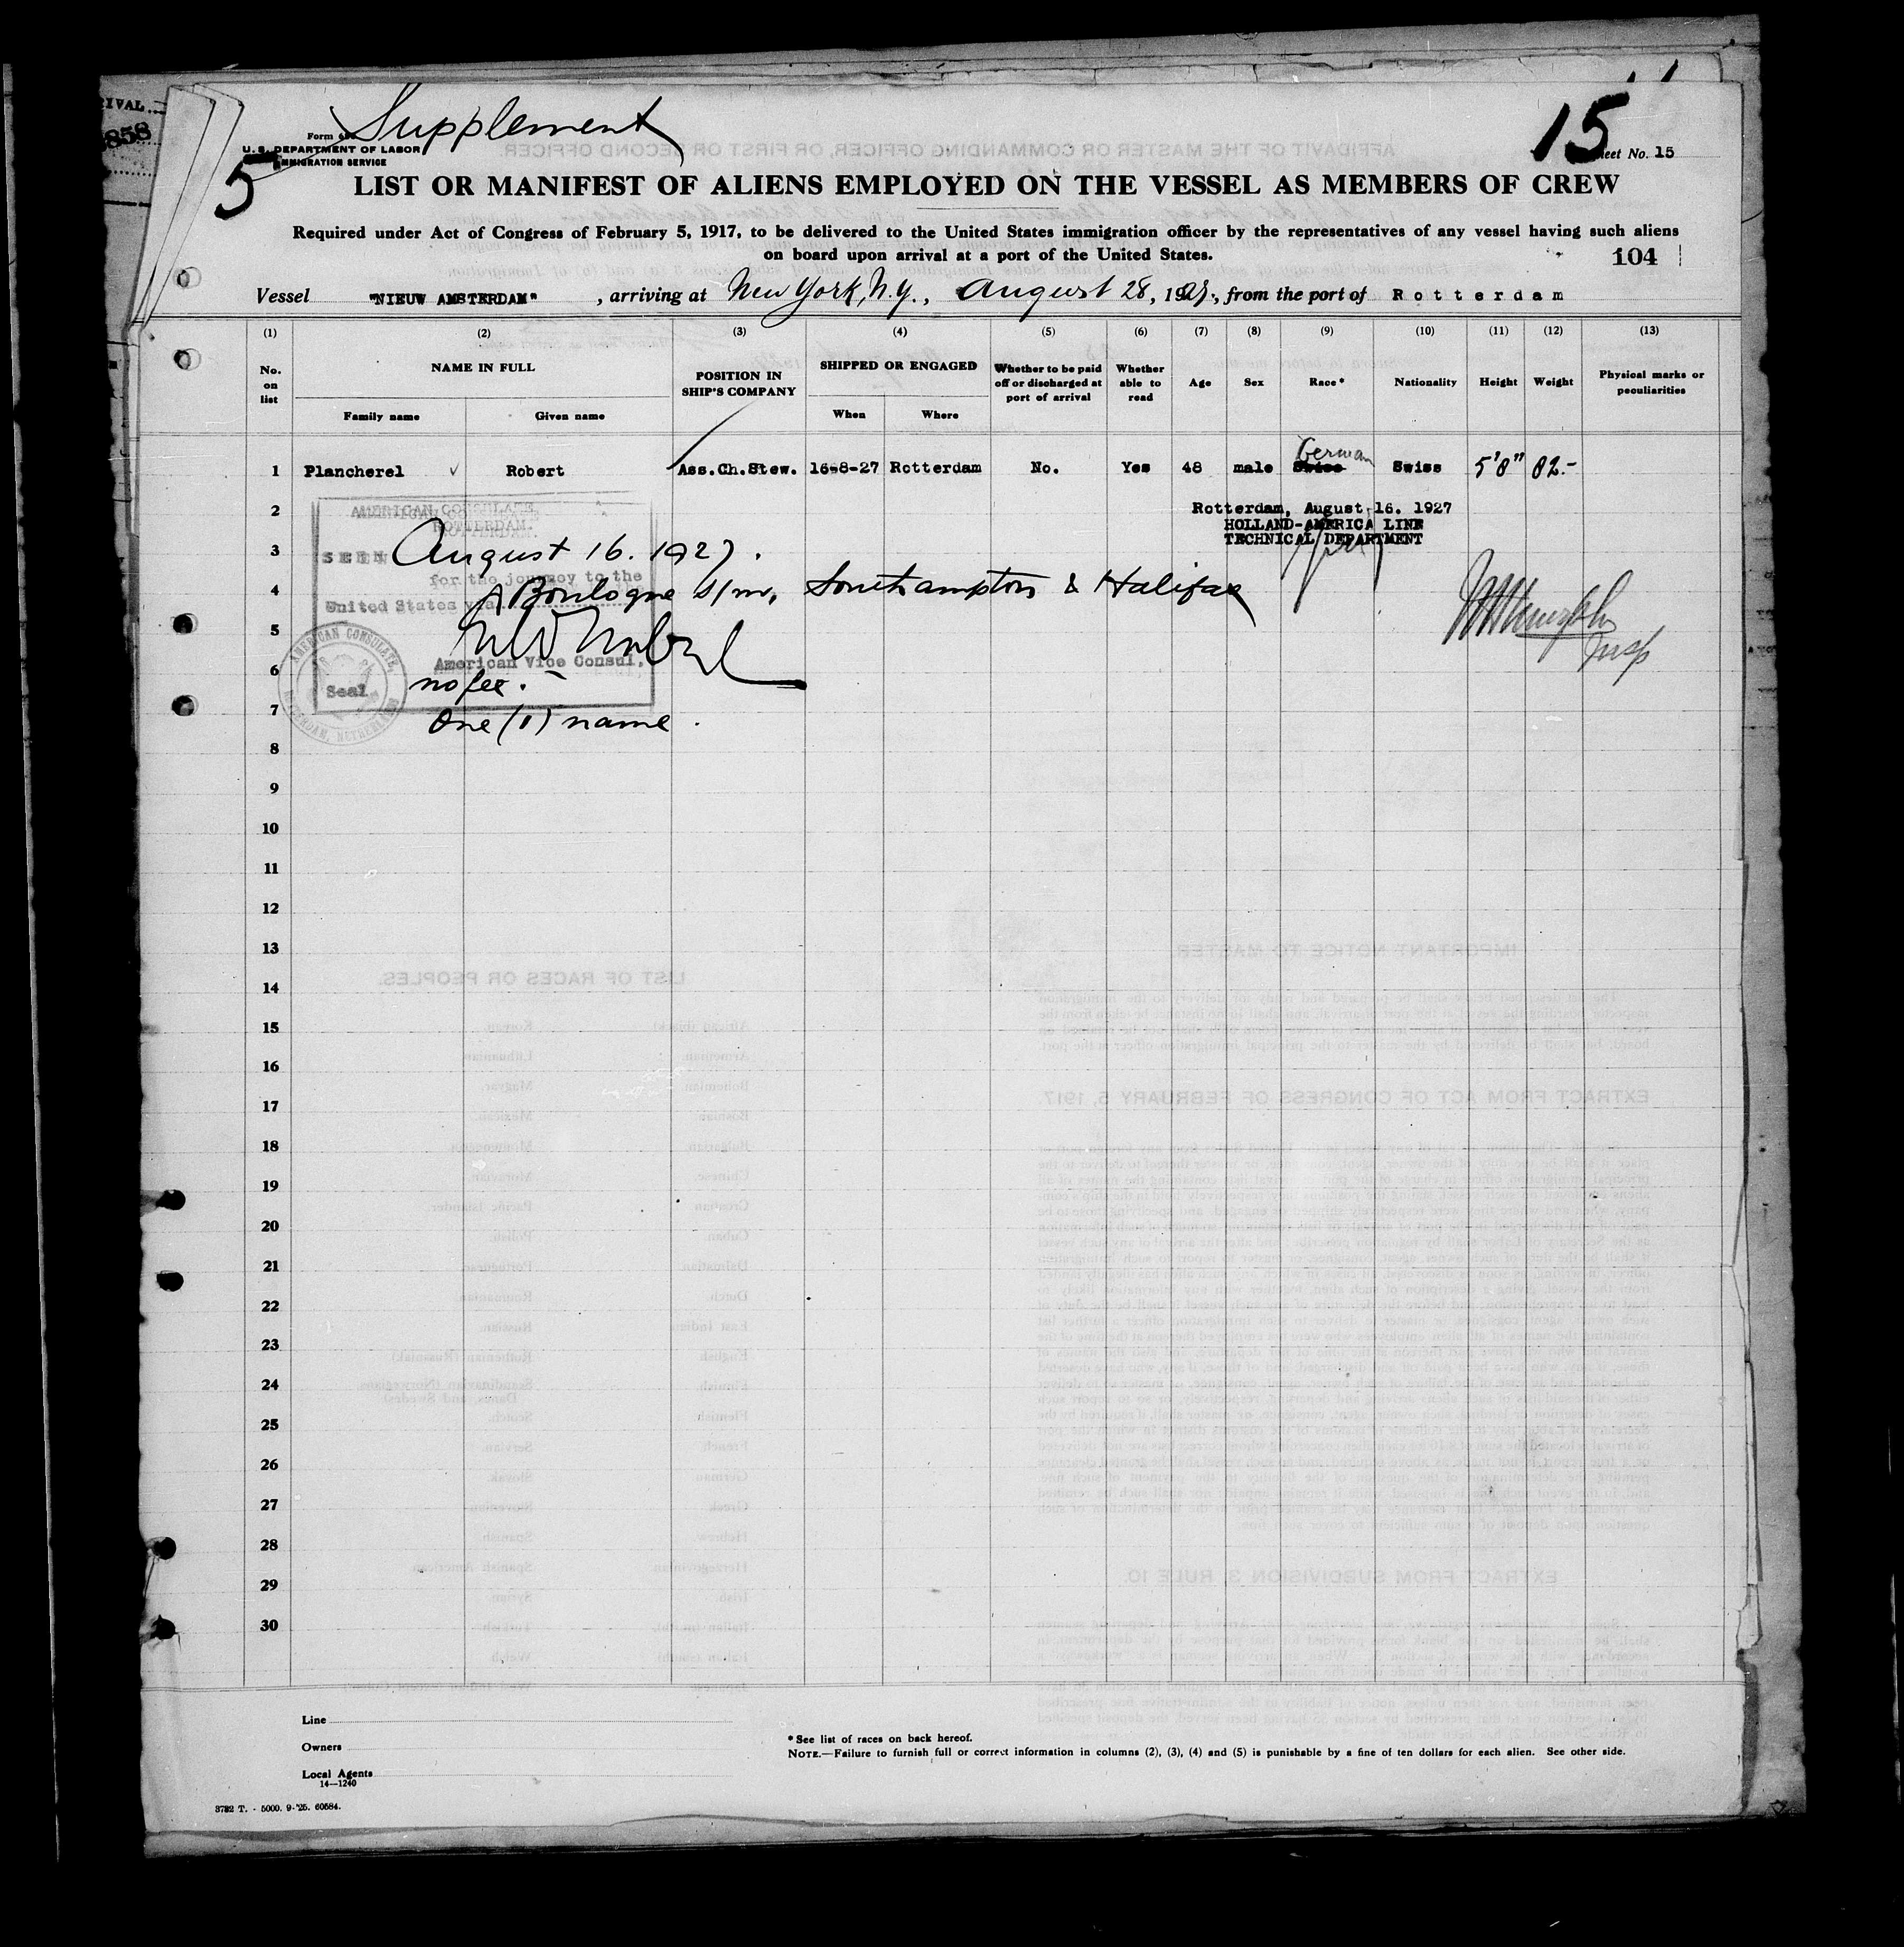 RIVAL
858
Supplement
15
Form
U. S. DEPARTMENT OF LABOR
IMMIGRATION SERVICE
5
Sheet No. 15
LIST OR MANIFEST OF ALIENS EMPLOYED ON THE VESSEL AS MEMBERS OF CREW
Required under Act of Congress of February 5, 1917, to be delivered to the United States immigration officer by the representatives of any vessel having such aliens
on board upon arrival at a port of the United States.
104
Vessel "NIEUW AMSTERDAM", arriving at New York, N.Y., August 28, 1927, from the port of Rotterdam
(1) (2) (3) (4) (5) (6) (7) (8) (9) (10) (11) (12) (13)
No. on list NAME IN FULL Family name Given name POSITION IN SHIP'S COMPANY SHIPPED OR ENGAGED When Where Whether to be paid off or discharged at port of arrival Whether able to read Age Sex Race* Nationality Height Weight Physical marks or peculiarities
German
1 Plancherel √ Robert Ass.Ch.Stew. 16-8-27 Rotterdam No. Yes 48 male Swiss Swiss 5'8" 82.-
2
AMERICAN CONSULATE
ROTTERDAM.
Rotterdam, August 16. 1927
HOLLAND-AMERICA LINE
TECHNICAL DEPARTMENT
3
SEEN August 16. 1927.
for the journey to the
4
United States via Boulogne s/m, Southampton & Halifax
5
6
American Vice Consul,
no fee.-
Seal
AMERICAN CONSULATE,
Insp
7
One (1) name.
8
9
10
11
12
13
14
15
16
17
18
19
20
21
22
23
24
25
26
27
28
29
30
Line
Owners
Local Agents
14—1240
* See list of races on back hereof.
NOTE.—Failure to furnish full or correct information in columns (2), (3), (4) and (5) is punishable by a fine of ten dollars for each alien. See other side.
3782 T. - 5000. 9-'25. 60584.